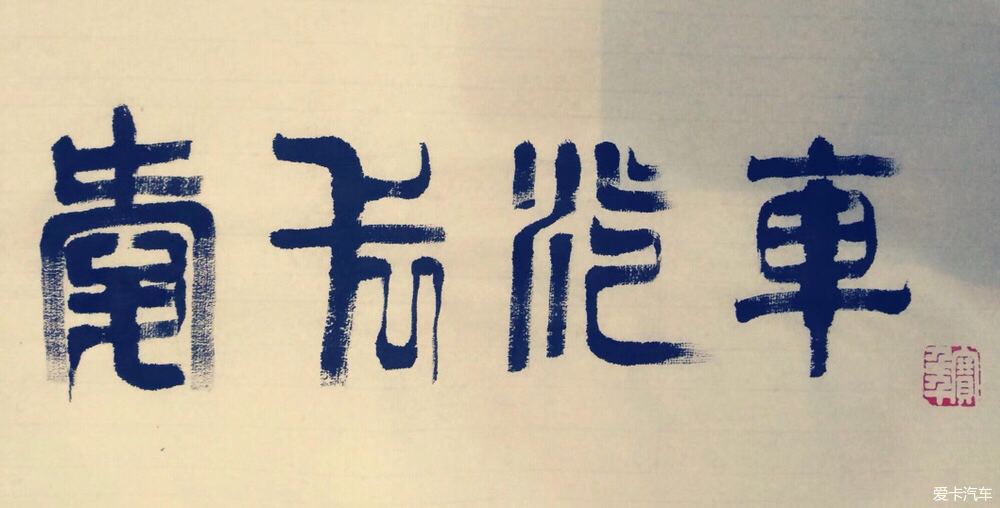 愛卡汽車
爱卡汽车